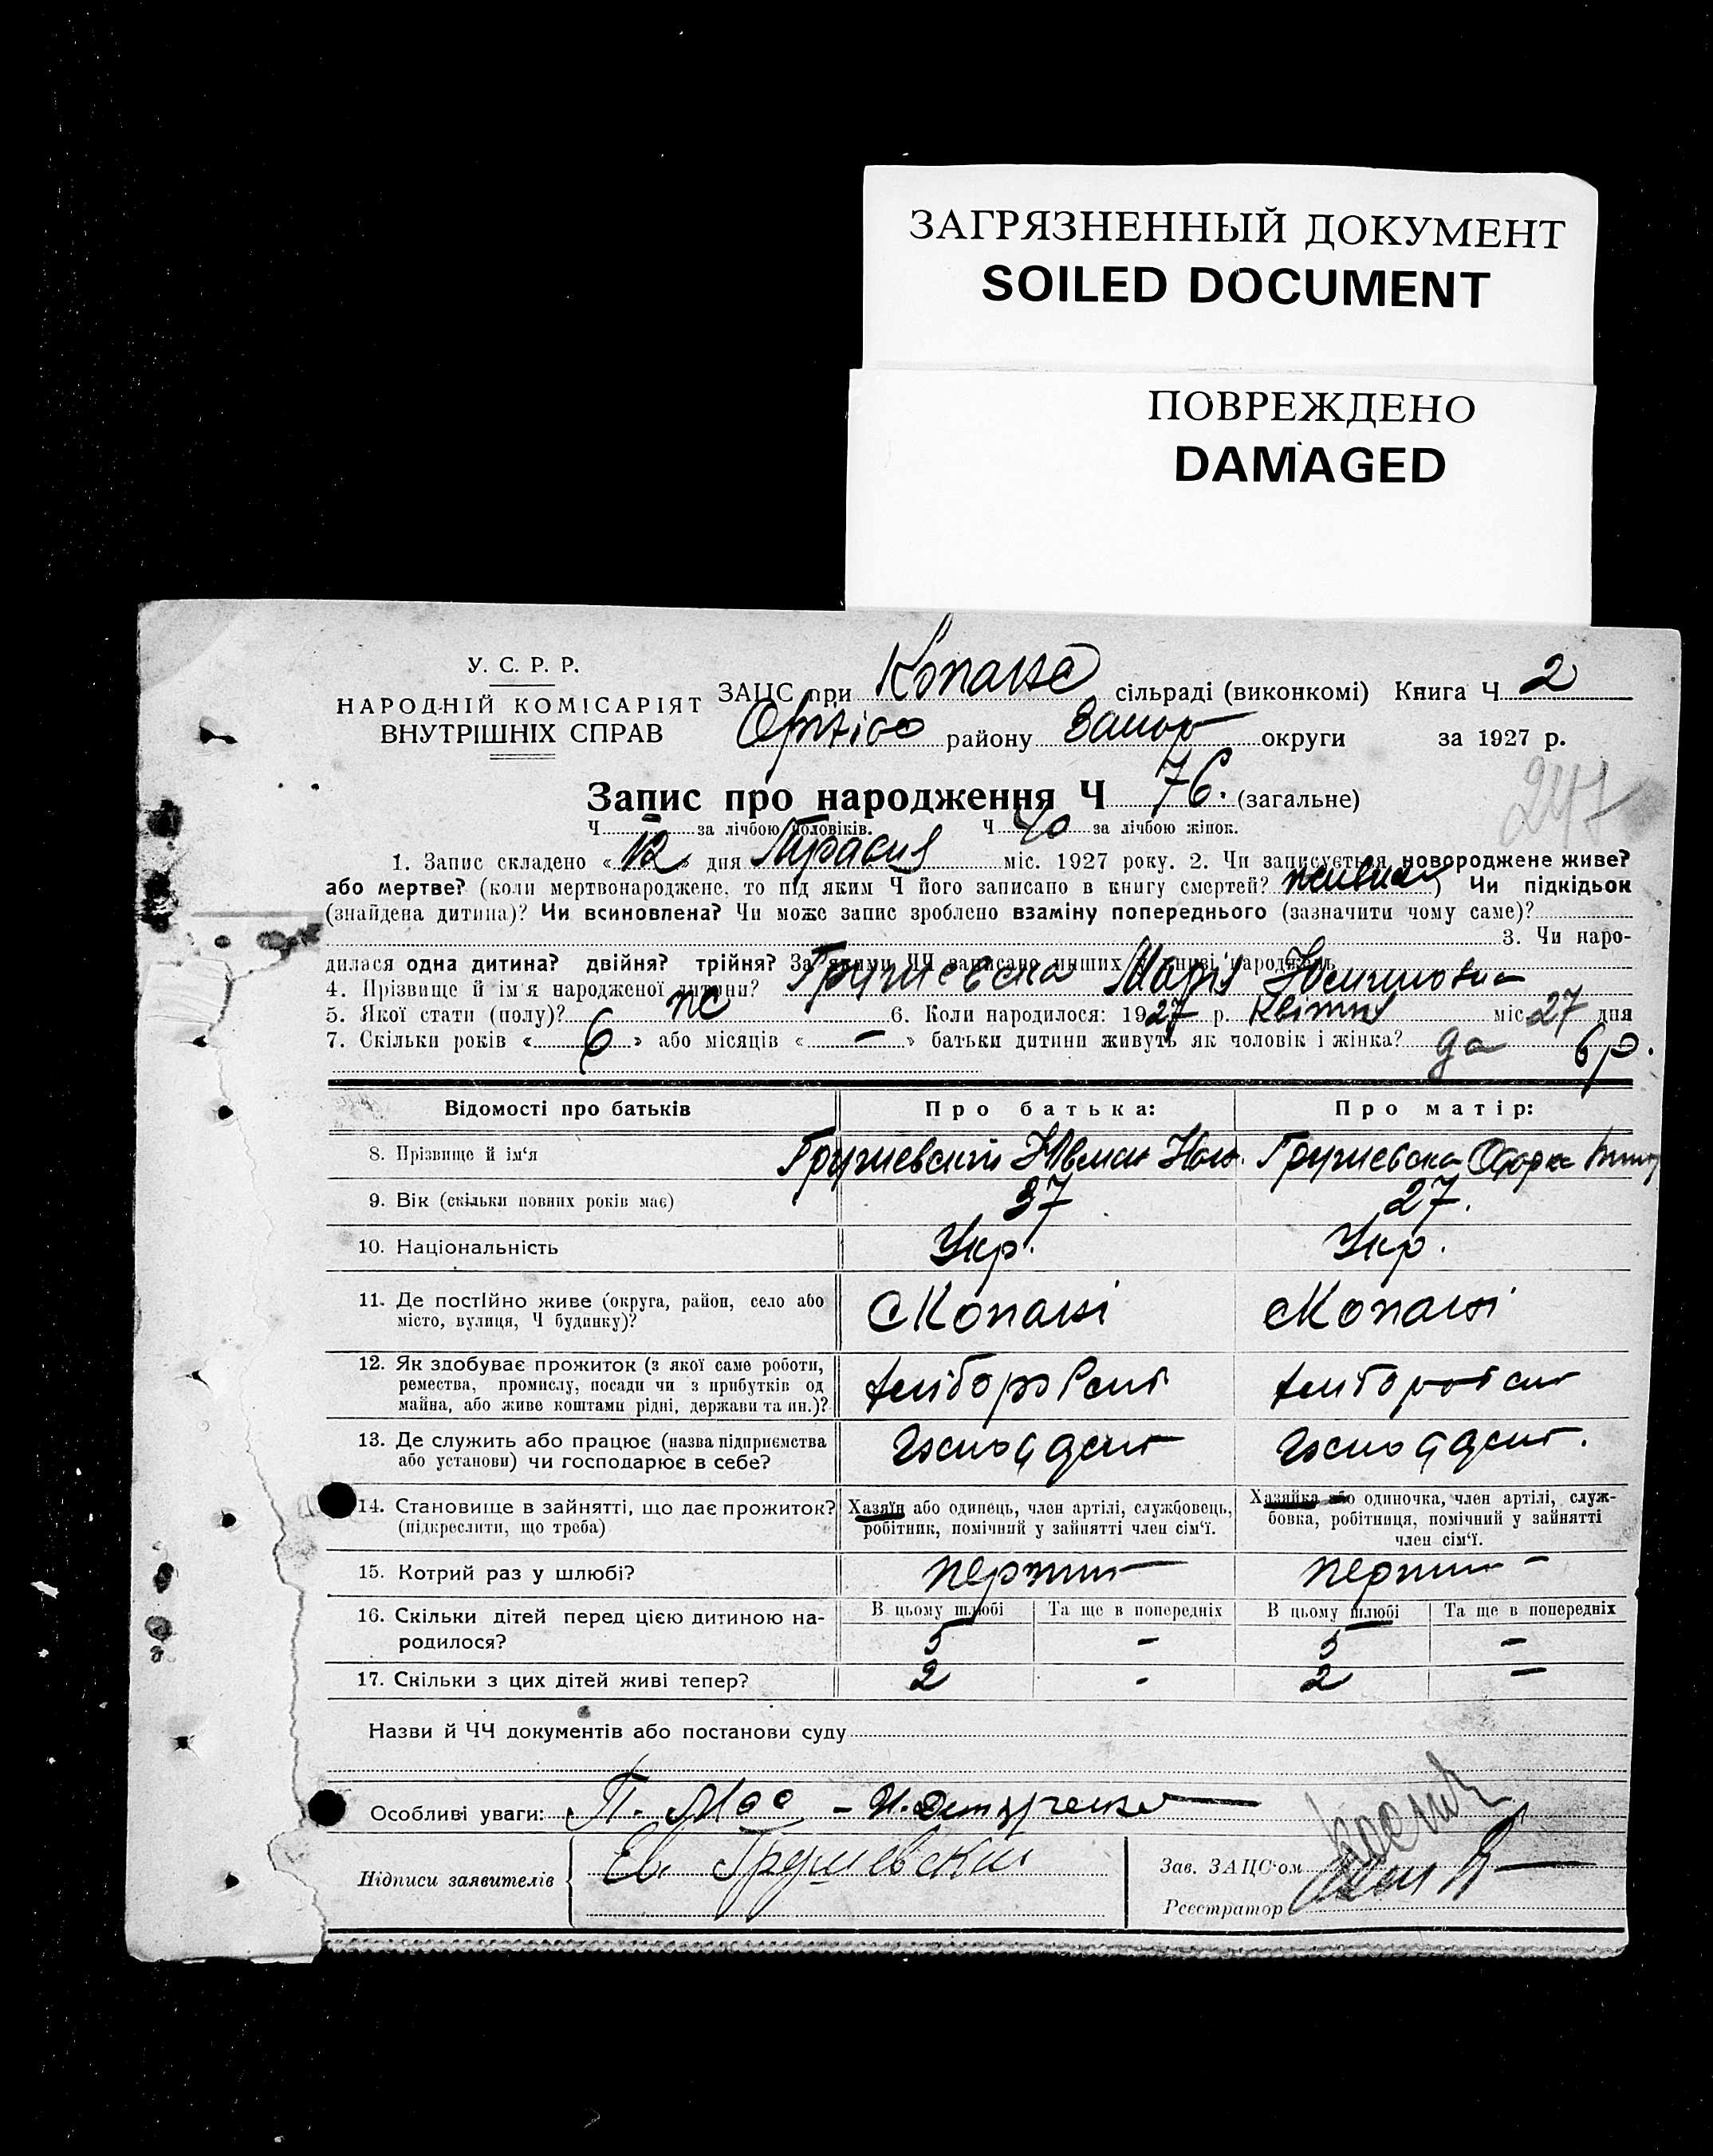 ЗАГРЯЗНЕННЫЙ ДОКУМЕНТ
SOILED DOCUMENT
ПОВРЕЖДЕНО
DAMAGED
У. С. Р. Р.
НАРОДНІЙ КОМІСАРІЯТ
ВНУТРІШНІХ СПРАВ
ЗАЦС при Копане сільраді (виконкомі) Книга Ч 2
Оріхівс району Запор округи за 1927 р.
247
Запис про народження Ч 76. (загальне)
Ч — за лічбою чоловіків. Ч 40 за лічбою жінок.
1. Запис складено « 12 » дня Травня міс. 1927 року. 2. Чи записується новороджене живе?
або мертве? (коли мертвонароджене, то під яким Ч його записано в книгу смертей? живим) Чи підкідьок
(знайдена дитина)? Чи всиновлена? Чи може запис зроблено взаміну попереднього (зазначити чому саме)?
3. Чи наро-
дилася одна дитина? двійня? трійня? За якими ЧЧ записано инших в книзі народжень
4. Прізвище й ім'я народженої дитини? Грушевска Марія
5. Якої стати (полу)? жс 6. Коли народилося: 1927 р. Квітня міс. 27 дня
7. Скільки років « 6 » або місяців « — » батьки дитини живуть як чоловік і жінка? да 6 р.
Відомості про батьків Про батька: Про матір:
8. Прізвище й ім'я Грушевский Грушевска Одарка
9. Вік (скільки повних років має) 37 27.
10. Національність Укр. Укр.
11. Де постійно живе (округа, район, село або
місто, вулиця, Ч будинку)? с Копані с Копані
12. Як здобуває прожиток (з якої саме роботи,
ремества, промислу, посади чи з прибутків од
майна, або живе коштами рідні, держави та ин.)? хліборобст хліборобст
13. Де служить або працює (назва підприємства
або установи) чи господарює в себе?
14. Становище в зайнятті, що дає прожиток? Хазяїн або одинець, член артілі, службовець, Хазяйка або одиночка, член артілі, служ-
(підкреслити, що треба) робітник, помічний у зайнятті член сім'ї. бовка, робітниця, помічний у зайнятті
член сім'ї.
15. Котрий раз у шлюбі? перший перший
16. Скільки дітей перед цією дитиною на- В цьому шлюбі Та ще в попередніх В цьому шлюбі Та ще в попередніх
родилося? 5 - 5 -
17. Скільки з цих дітей живі тепер? 2 - 2 -
Назви й ЧЧ документів або постанови суду
Особливі уваги:
Підписи заявителів Ев Грушевский
Зав. ЗАЦС'ом
Реєстратор